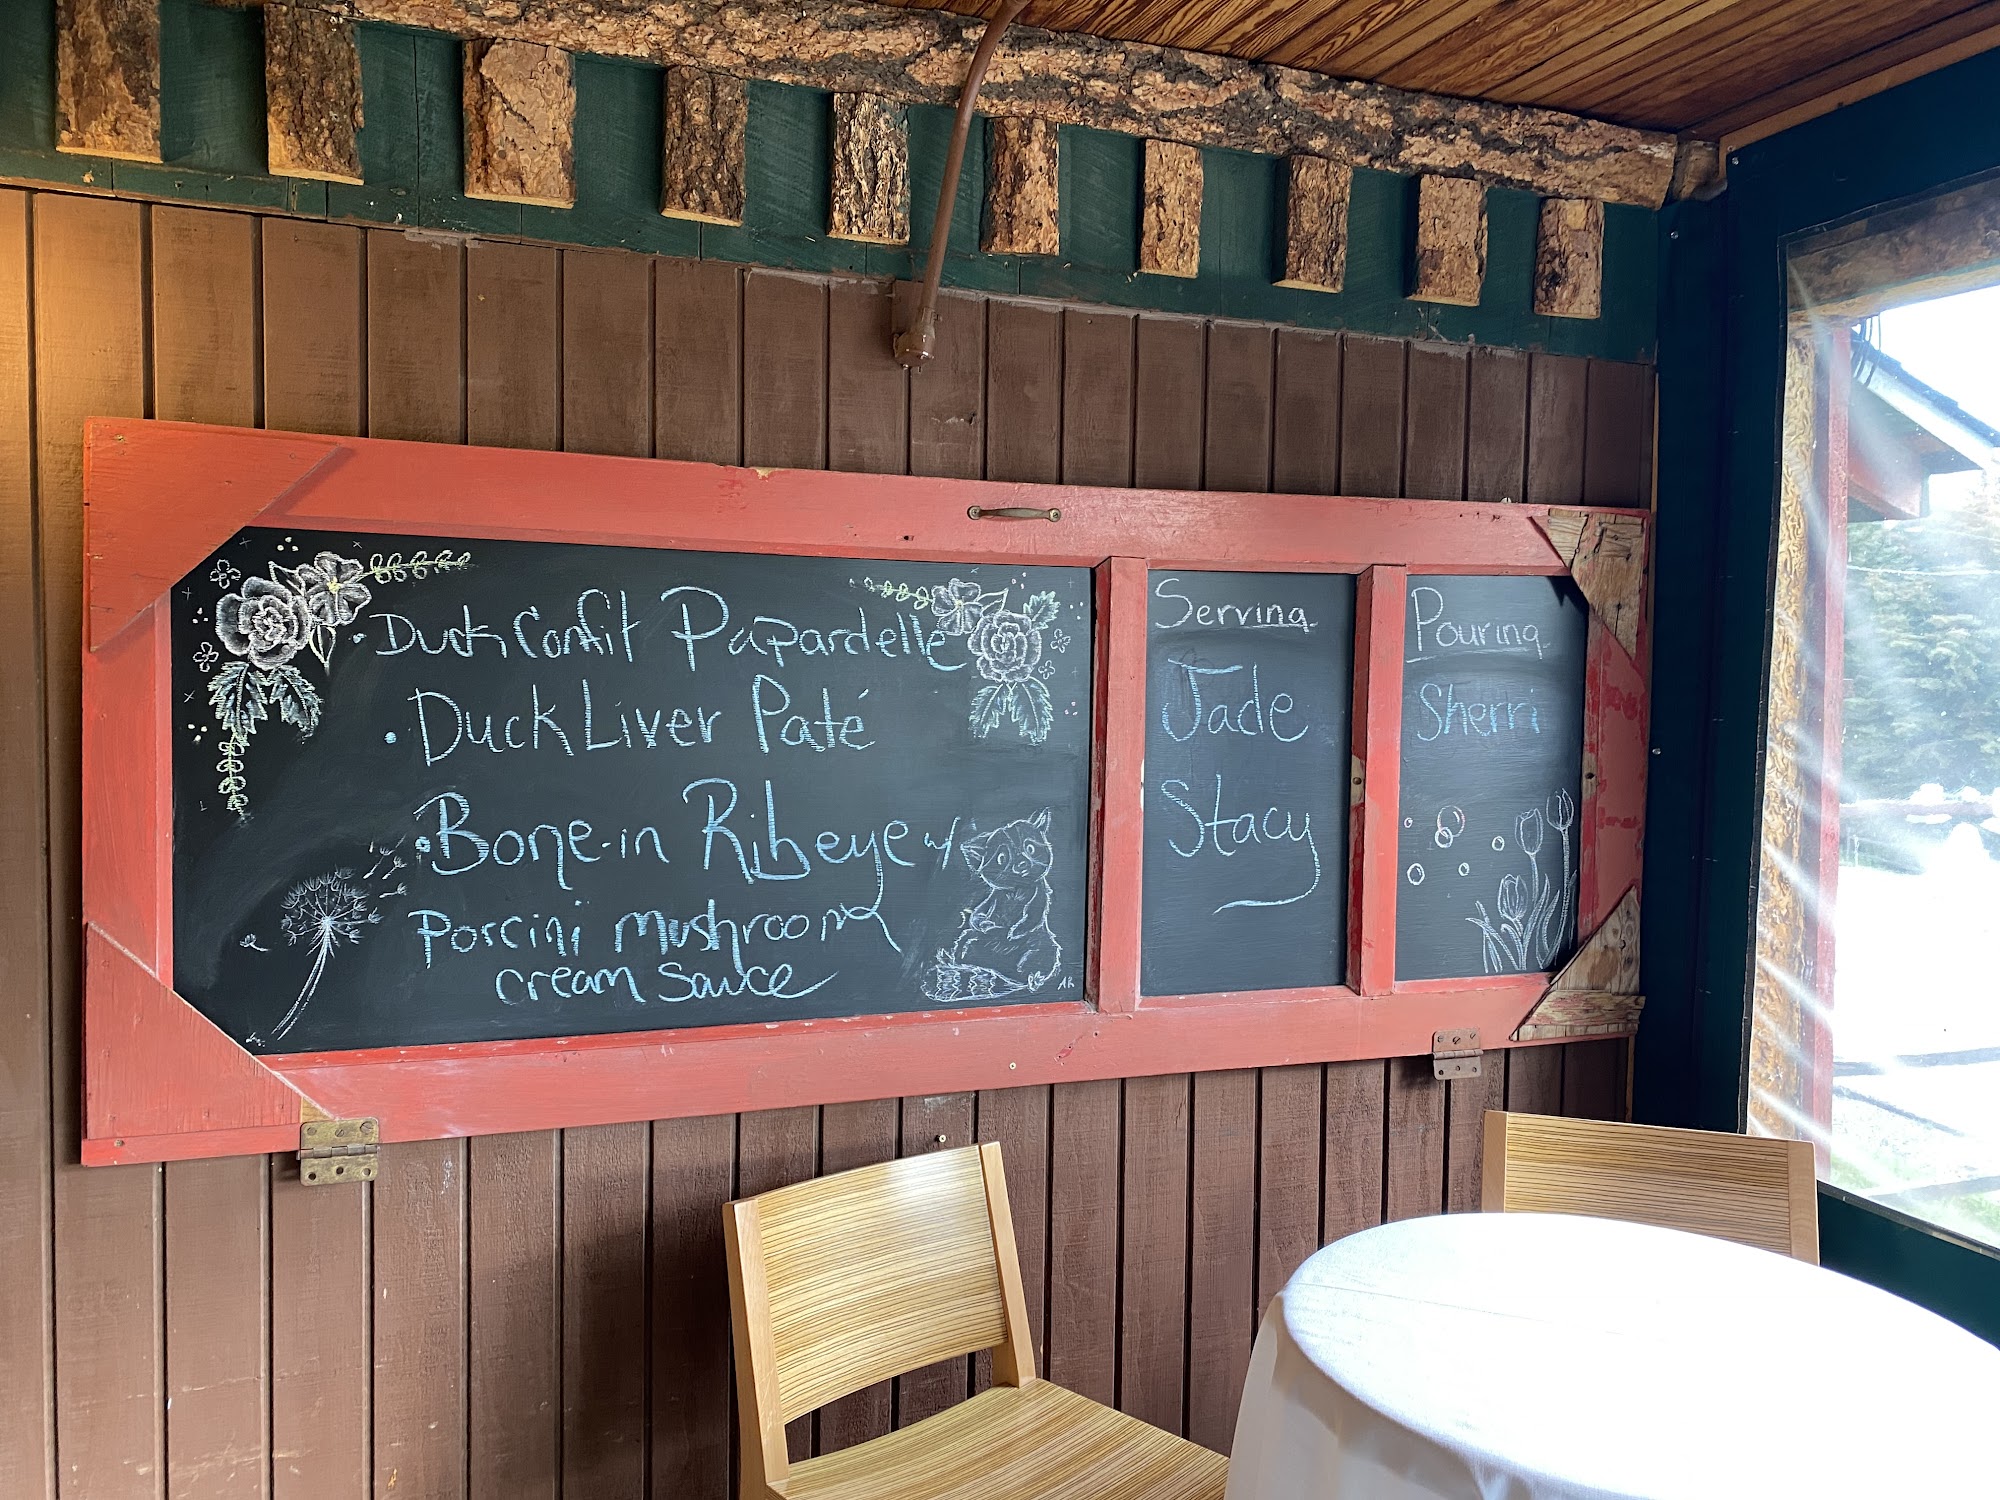 · Duck Confit Papardelle
· Duck Liver Paté
· Bone-in Ribeye w/
Porcini mushroom
cream sauce
AR
Serving
Jade
Stacy
Pouring
Sherri